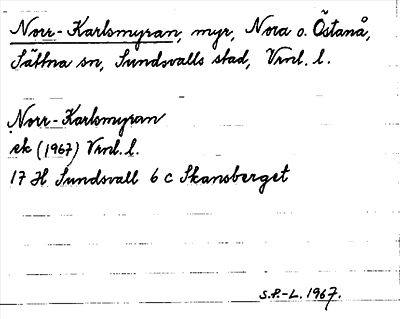 Norr-Karlsmyran, myr, Nora o. Östanå,
Sättna sn, Sundsvalls stad, Vrnl. l.
Norr-Karlsmyran
ek (1967) Vrnl. l.
17 H Sundsvall 6 c Skansberget
S.P.-L. 1967.